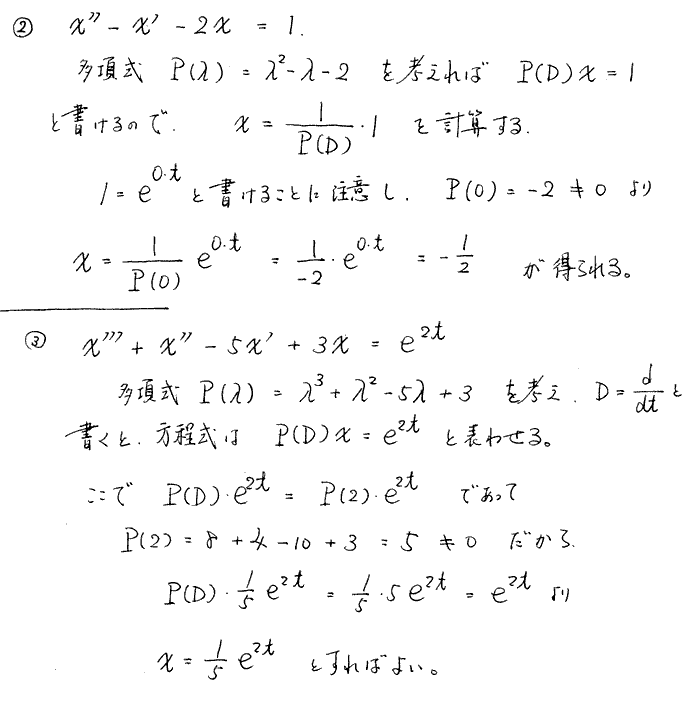 ② x'' - x' - 2x = 1.
多項式 P(λ) = λ² - λ - 2 を考えれば P(D)x = 1
と書けるので. x = 1/P(D) · 1 を計算する.
1 = e^{0·t} と書けることに注意し. P(0) = -2 ≠ 0 より
x = 1/P(0) e^{0·t} = 1/-2 · e^{0·t} = -1/2 が得られる。
③ x''' + x'' - 5x' + 3x = e^{2t}
多項式 P(λ) = λ³ + λ² - 5λ + 3 を考え. D = d/dt と
書くと. 方程式は P(D)x = e^{2t} と表わせる。
ここで P(D)·e^{2t} = P(2)·e^{2t} であって
P(2) = 8 + 4 - 10 + 3 = 5 ≠ 0 だから.
P(D)·1/5 e^{2t} = 1/5 · 5e^{2t} = e^{2t} より
x = 1/5 e^{2t} とすればよい。